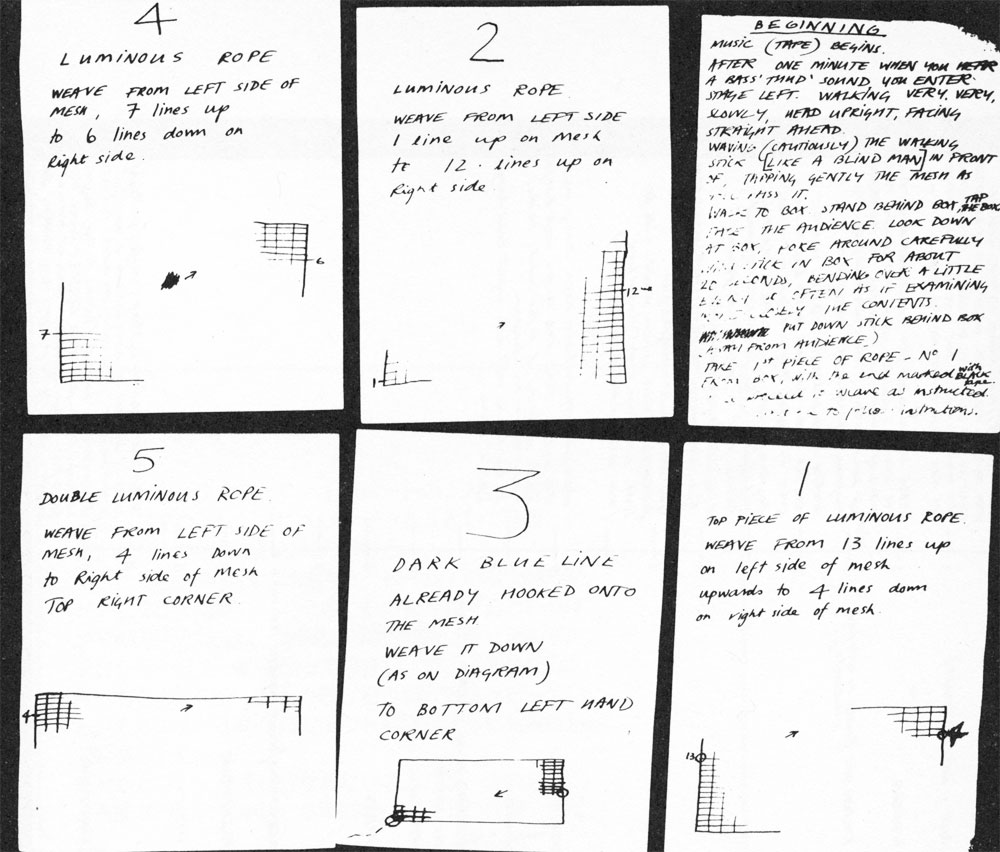 4
LUMINOUS ROPE
WEAVE FROM LEFT SIDE OF
MESH, 7 lines up
to 6 lines down on
Right side.
6
7
2
LUMINOUS ROPE
WEAVE FROM LEFT SIDE
1 line up on mesh
to 12. lines up on
Right side
12
1
BEGINNING
MUSIC (TAPE) BEGINS.
AFTER ONE MINUTE WHEN YOU HEAR
A BASS 'THUD' SOUND YOU ENTER
STAGE LEFT. WALKING VERY, VERY,
SLOWLY, HEAD UPRIGHT, FACING
STRAIGHT AHEAD.
WAVING (CAUTIOUSLY) THE WALKING
STICK [LIKE A BLIND MAN] IN FRONT
OF, TAPPING GENTLY THE MESH AS
PASS IT.
WALK TO BOX STAND BEHIND BOX, TAP THE BOX
FACE THE AUDIENCE. LOOK DOWN
AT BOX, POKE AROUND CAREFULLY
WITH STICK IN BOX FOR ABOUT
20 SECONDS, BENDING OVER A LITTLE
EVERY SO OFTEN AS IF EXAMINING
THE CONTENTS.
PUT DOWN STICK BEHIND BOX
(AWAY FROM AUDIENCE)
TAKE 1st PIECE OF ROPE - No 1
FROM BOX, with the end marked with BLACK tape.
weave as instructed.
to instructions.
5
DOUBLE LUMINOUS ROPE.
WEAVE FROM LEFT SIDE OF
MESH, 4 lines DOWN
to Right side of Mesh
TOP RIGHT CORNER.
4
3
DARK BLUE LINE
ALREADY HOOKED ONTO
THE MESH
WEAVE IT DOWN
(AS ON DIAGRAM)
TO BOTTOM LEFT HAND
CORNER
1
TOP PIECE OF LUMINOUS ROPE.
WEAVE FROM 13 lines up
on left side of mesh
upwards to 4 lines down
on right side of mesh.
13